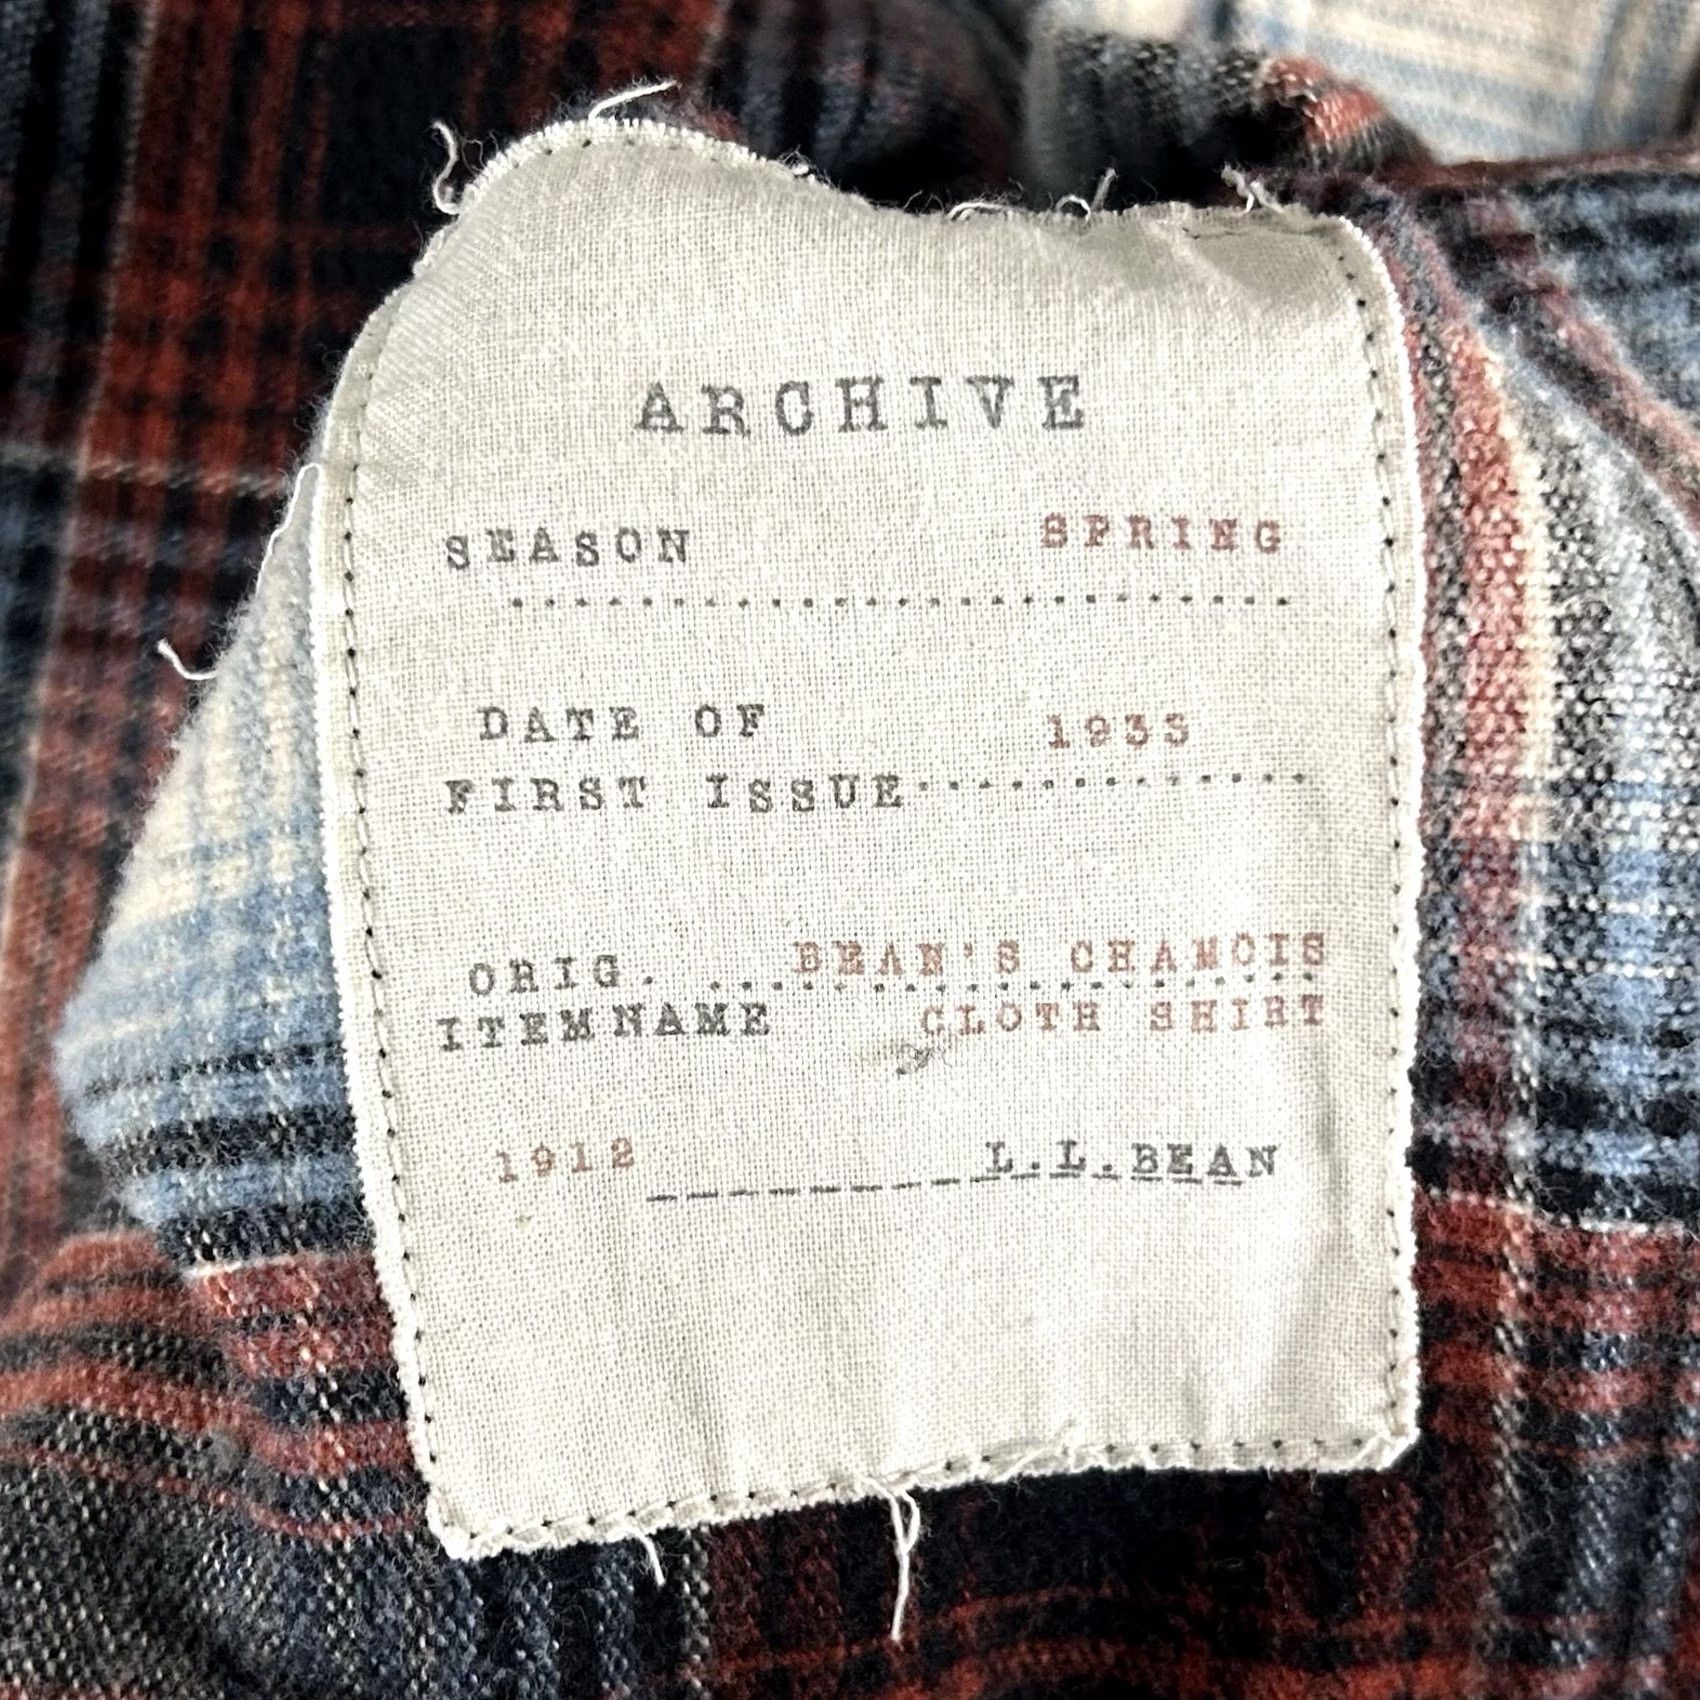 ARCHIVE
SEASON SPRING
DATE OF 1933
FIRST ISSUE
ORIG. BEAN'S CHAMOIS
ITEM NAME CLOTH SHIRT
1912 L.L.BEAN